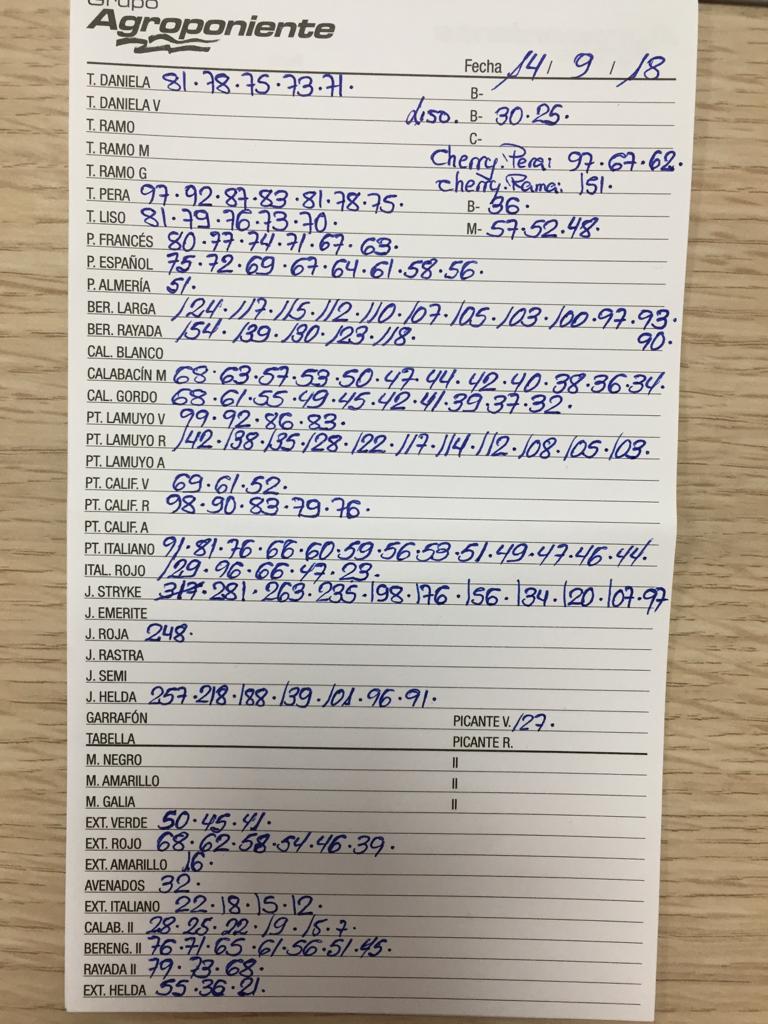 Grupo
Agroponiente
Fecha 14 / 9 / 18
T. DANIELA 81·78·75·73·71· B-
T. DANIELA V liso. B- 30·25·
T. RAMO C-
T. RAMO M Cherry.Pera: 97·67·62·
T. RAMO G cherry.Rama: 151·
T. PERA 97·92·87·83·81·78·75· B- 36·
T. LISO 81·79·76·73·70· M- 57·52·48·
P. FRANCÉS 80·77·74·71·67·63·
P. ESPAÑOL 75·72·69·67·64·61·58·56·
P. ALMERÍA 51·
BER. LARGA 124·117·115·112·110·107·105·103·100·97·93·
BER. RAYADA 154·139·130·123·118· 90·
CAL. BLANCO
CALABACÍN M 68·63·57·53·50·47·44·42·40·38·36·34·
CAL. GORDO 68·61·55·49·45·42·41·39·37·32·
PT. LAMUYO V 99·92·86·83·
PT. LAMUYO R 142·138·135·128·122·117·114·112·108·105·103·
PT. LAMUYO A
PT. CALIF. V 69·61·52·
PT. CALIF. R 98·90·83·79·76·
PT. CALIF. A
PT. ITALIANO 91·81·76·66·60·59·56·53·51·49·47·46·44·
ITAL. ROJO 129·96·66·47·23·
J. STRYKE 317·281·263·235·198·176·156·134·120·107·97
J. EMERITE
J. ROJA 248·
J. RASTRA
J. SEMI
J. HELDA 257·218·188·139·101·96·91·
GARRAFÓN PICANTE V. 127·
TABELLA PICANTE R.
M. NEGRO II
M. AMARILLO II
M. GALIA II
EXT. VERDE 50·45·41·
EXT. ROJO 68·62·58·54·46·39·
EXT. AMARILLO 16·
AVENADOS 32·
EXT. ITALIANO 22·18·15·12·
CALAB. II 28·25·22·19·15·7·
BERENG. II 76·71·65·61·56·51·45·
RAYADA II 79·73·68·
EXT. HELDA 55·36·21·